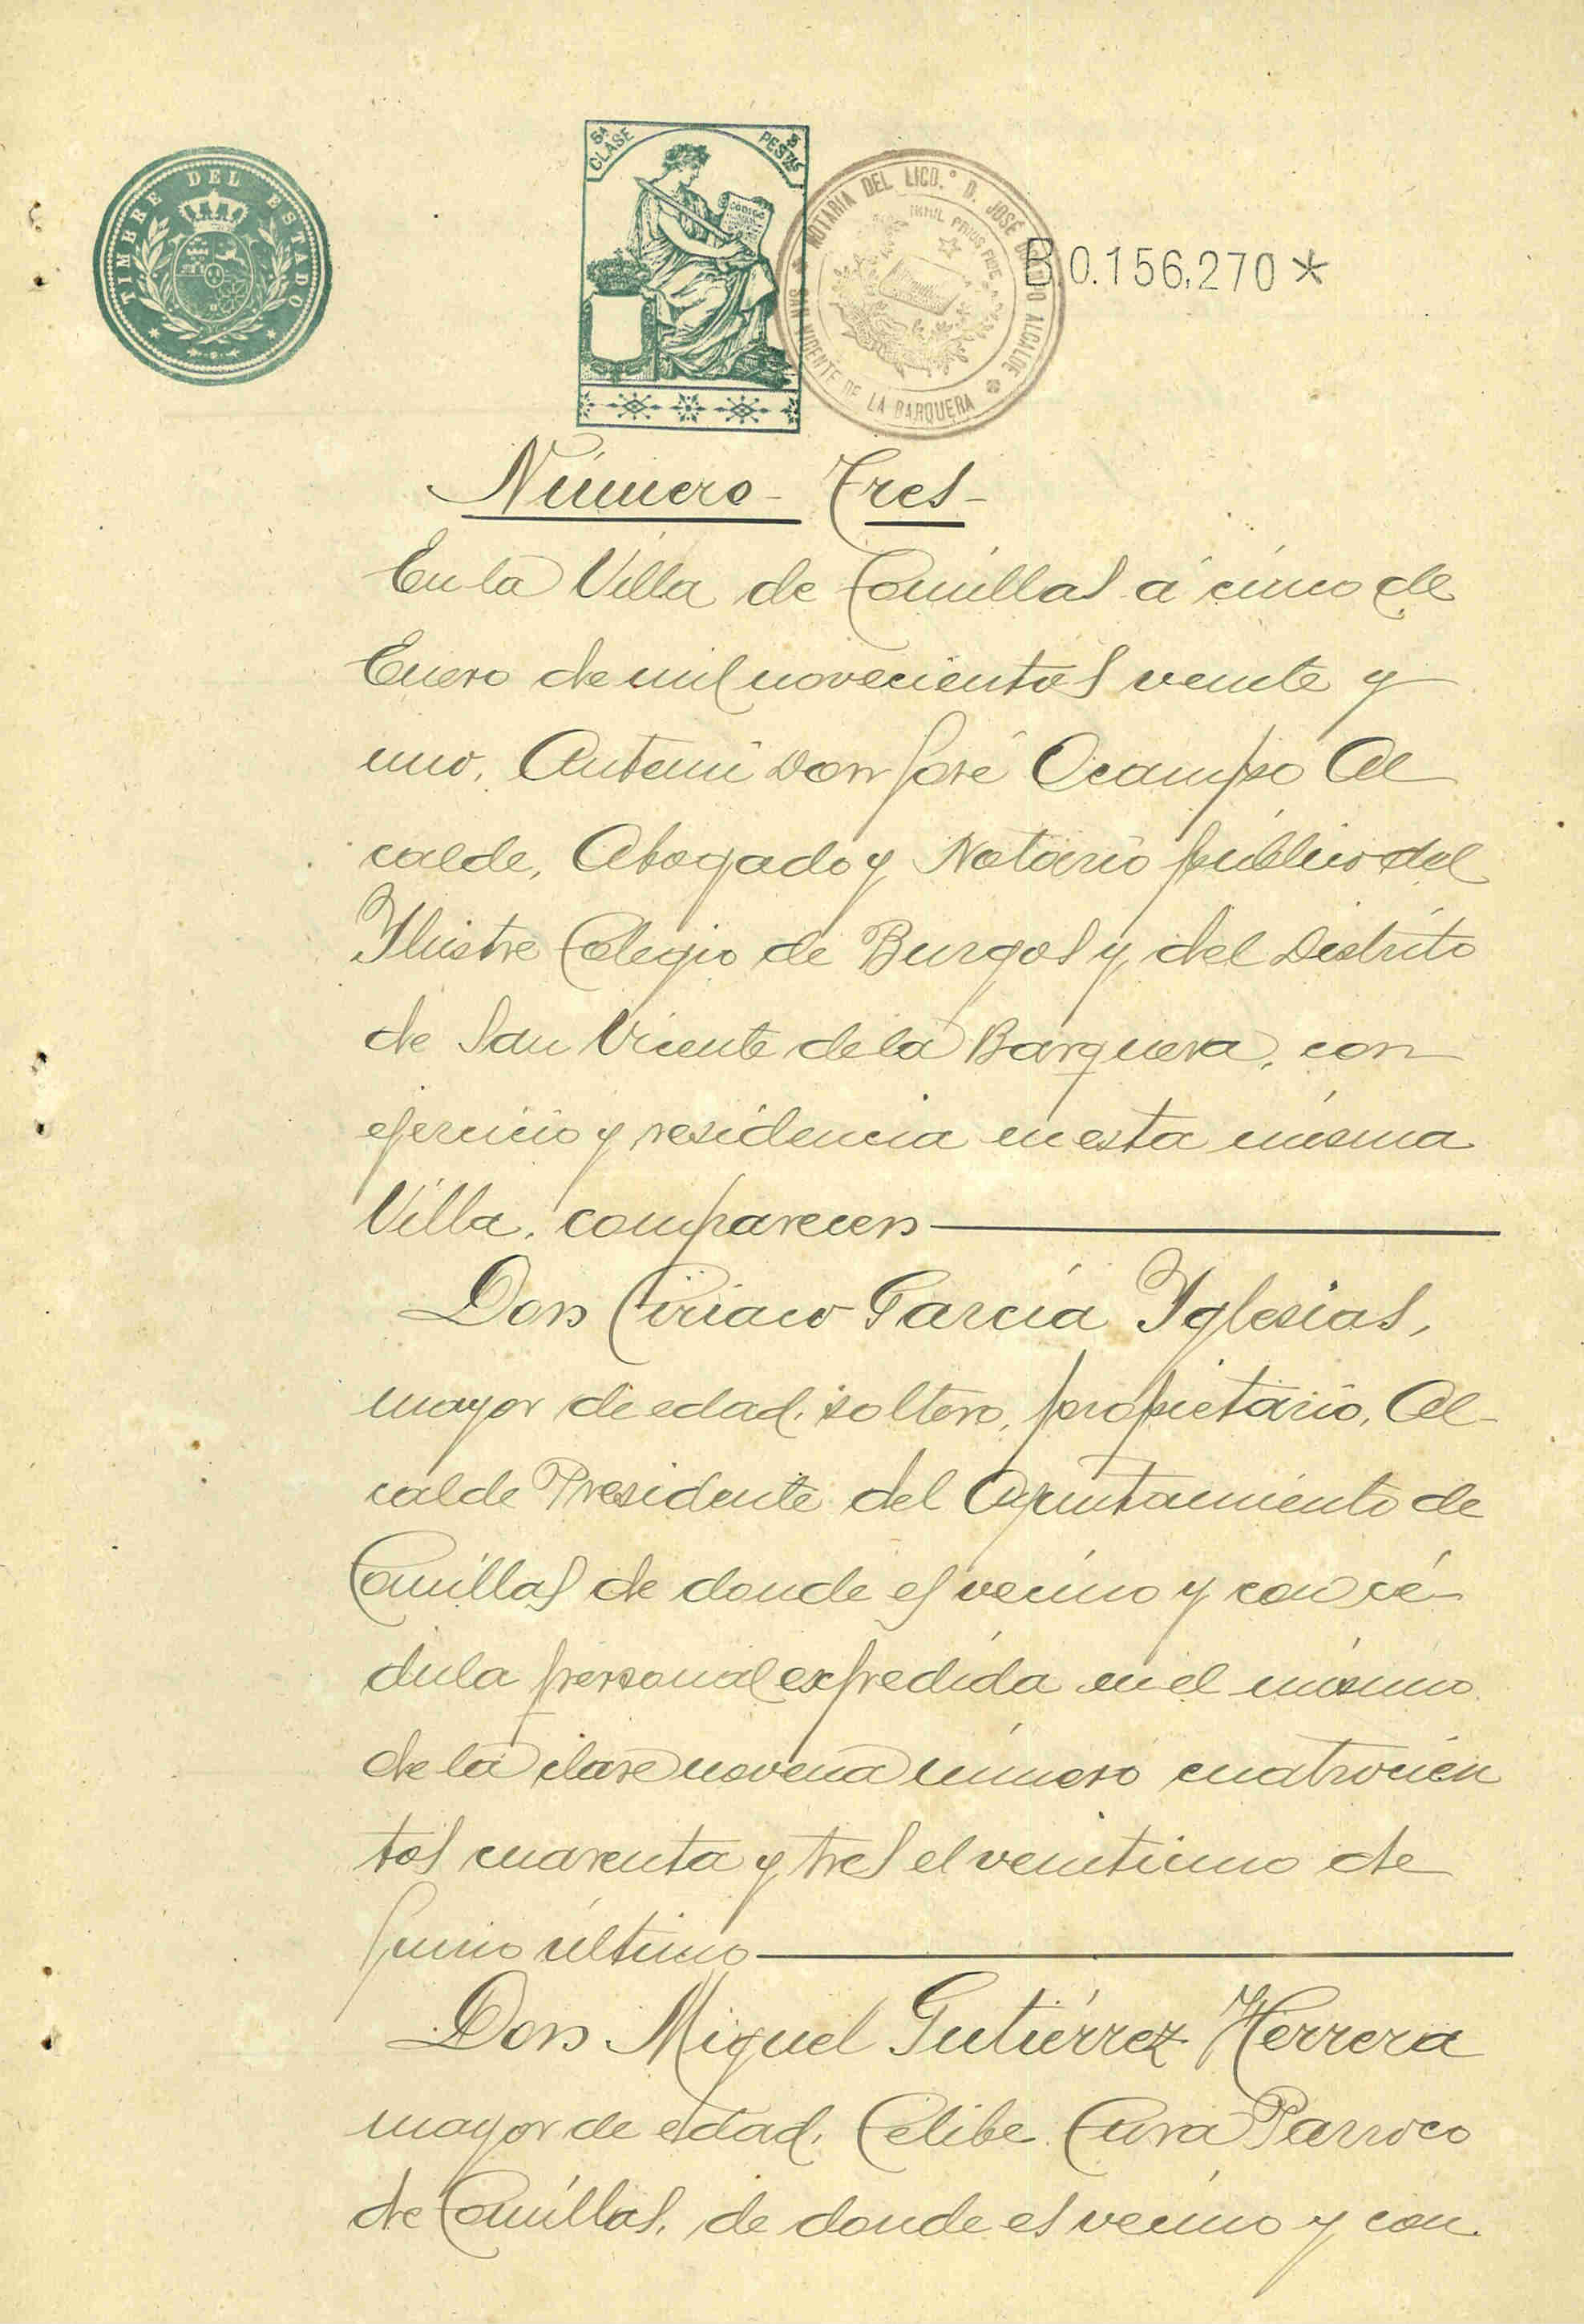 TIMBRE DEL ESTADO
5ª CLASE
5 PESTAS
CODIGO
NOTARIA DEL LICD.º D. JOSÉ OCAMPO ALCALDE
NIHIL PRIUS FIDE
SAN VICENTE DE LA BARQUERA
B.0.156,270 *
Número- Tres-
En la Villa de Comillas á cinco de
Enero de mil novecientos veinte y
uno, Antemi Don José Ocampo Al
calde, Abogado y Notario público del
Ilustre Colegio de Burgos y del Distrito
de San Vicente de la Barquera, con
ejercicio y residencia en esta misma
Villa, comparecen
Don Ciriaco García Yglesias,
mayor de edad, soltero, propietario, Al-
calde Presidente del Ayuntamiento de
Comillas de donde es vecino y con cé-
dula personal expedida en el mismo
de la clase novena número cuatrocien
tos cuarenta y tres el veintiuno de
Junio último
Don Miguel Gutiérrez Herrera
mayor de edad, Celibe Cura Parroco
de Comillas, de donde es vecino y con